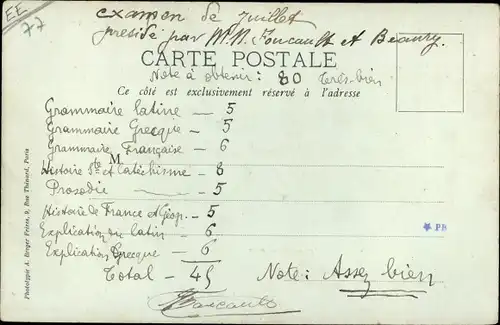 EE
77
Examen de juillet
présidé par M.M. Foucault et Beaury.
CARTE POSTALE
Note à obtenir: 80 très-bien
Ce côté est exclusivement réservé à l'adresse
Grammaire latine — 5
Grammaire Grecque — 5
Grammaire Française — 6
M
Histoire Ste et Catéchisme — 8
Prosodie — 5
Histoire de France et Géog. — 5
Explication du latin — 6
Explication Grecque — 6
Total — 45
Note: Assez bien
Foucault
PB
Phototypie A. Berger Frères, 9, Rue Thénard, Paris